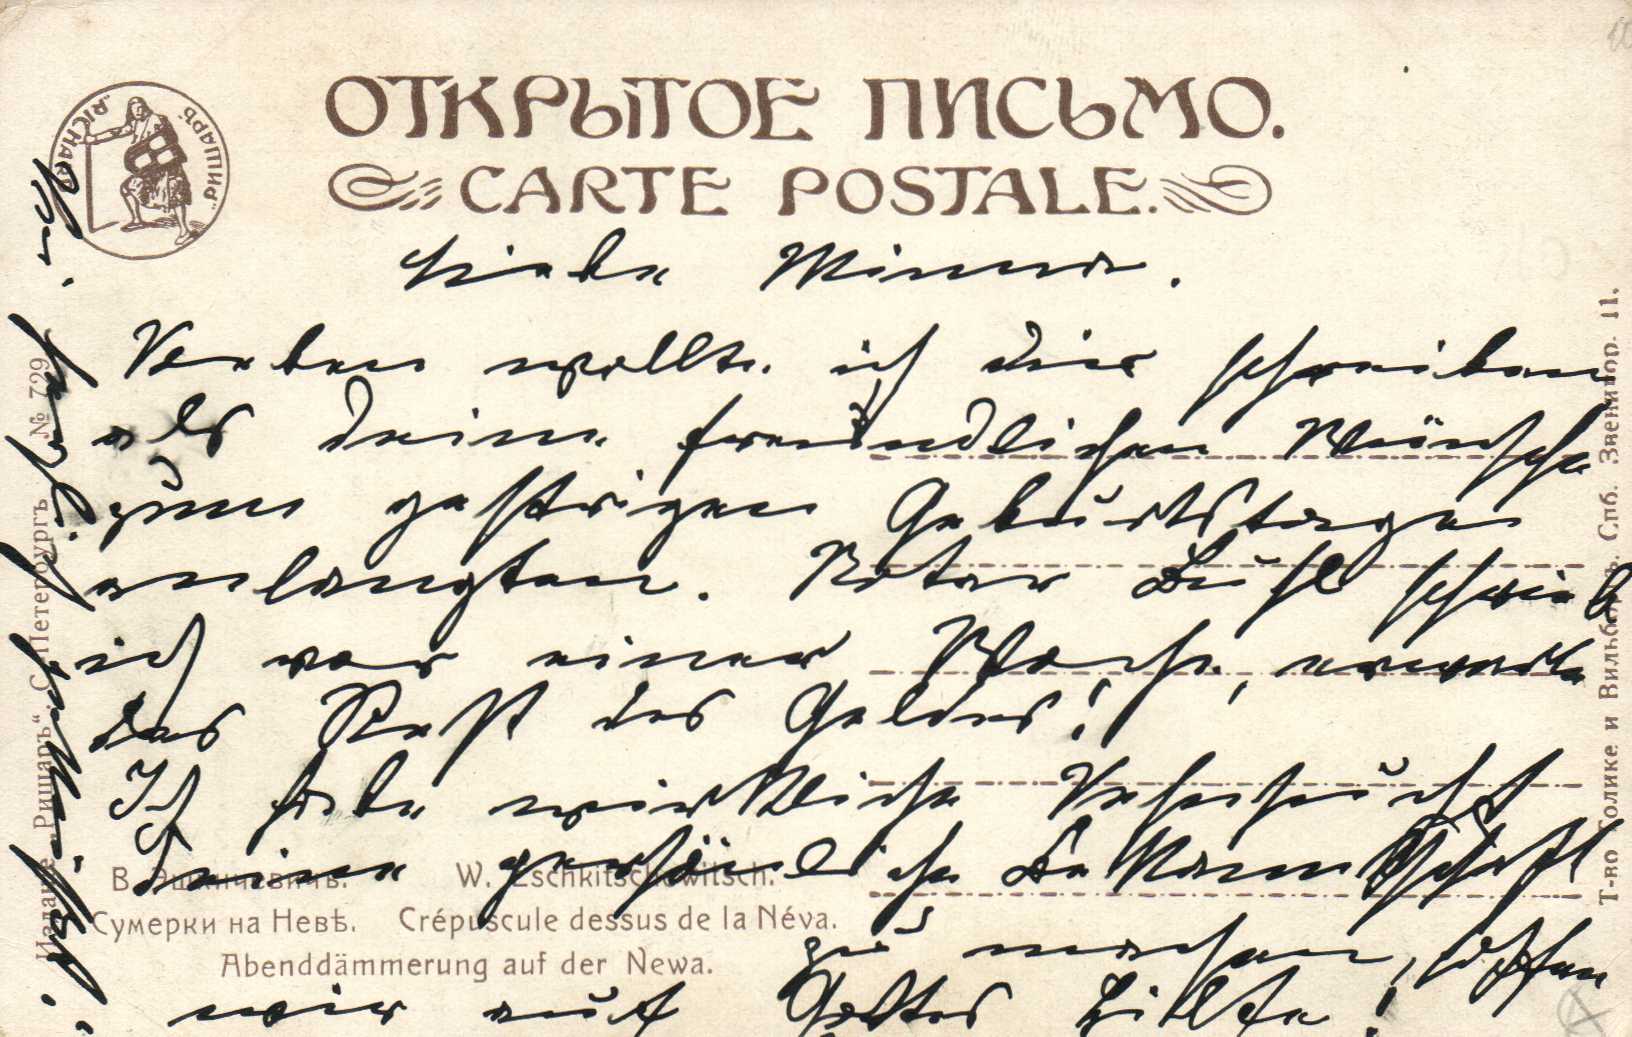 ОТКРЫТОЕ ПИСЬМО.
CARTE POSTALE.
„RICHARD“ „РИШАРЪ“
Liebe Minna.
Soeben wollte ich Dir schreiben
als Deine freundlichen Wünsche
zum gestrigen Geburtstage
anlangten. Notar Buhl schrieb
ich vor einer Woche, erwarte
das Rest des Geldes!
Ich habe wirkliche Sehnsucht
Deine persönliche Bekanntschaft
zu machen, hoffen
wir auf Gottes Hilfe!
В. Эшкичевичъ. W. Eschkitschewitsch.
Сумерки на Невѣ. Crépuscule dessus de la Néva.
Abenddämmerung auf der Newa.
Изданіе „Ришаръ“ С. Петербургъ № 729
Т-во Голике и Вильборгъ. Спб. Звенигор. 11.